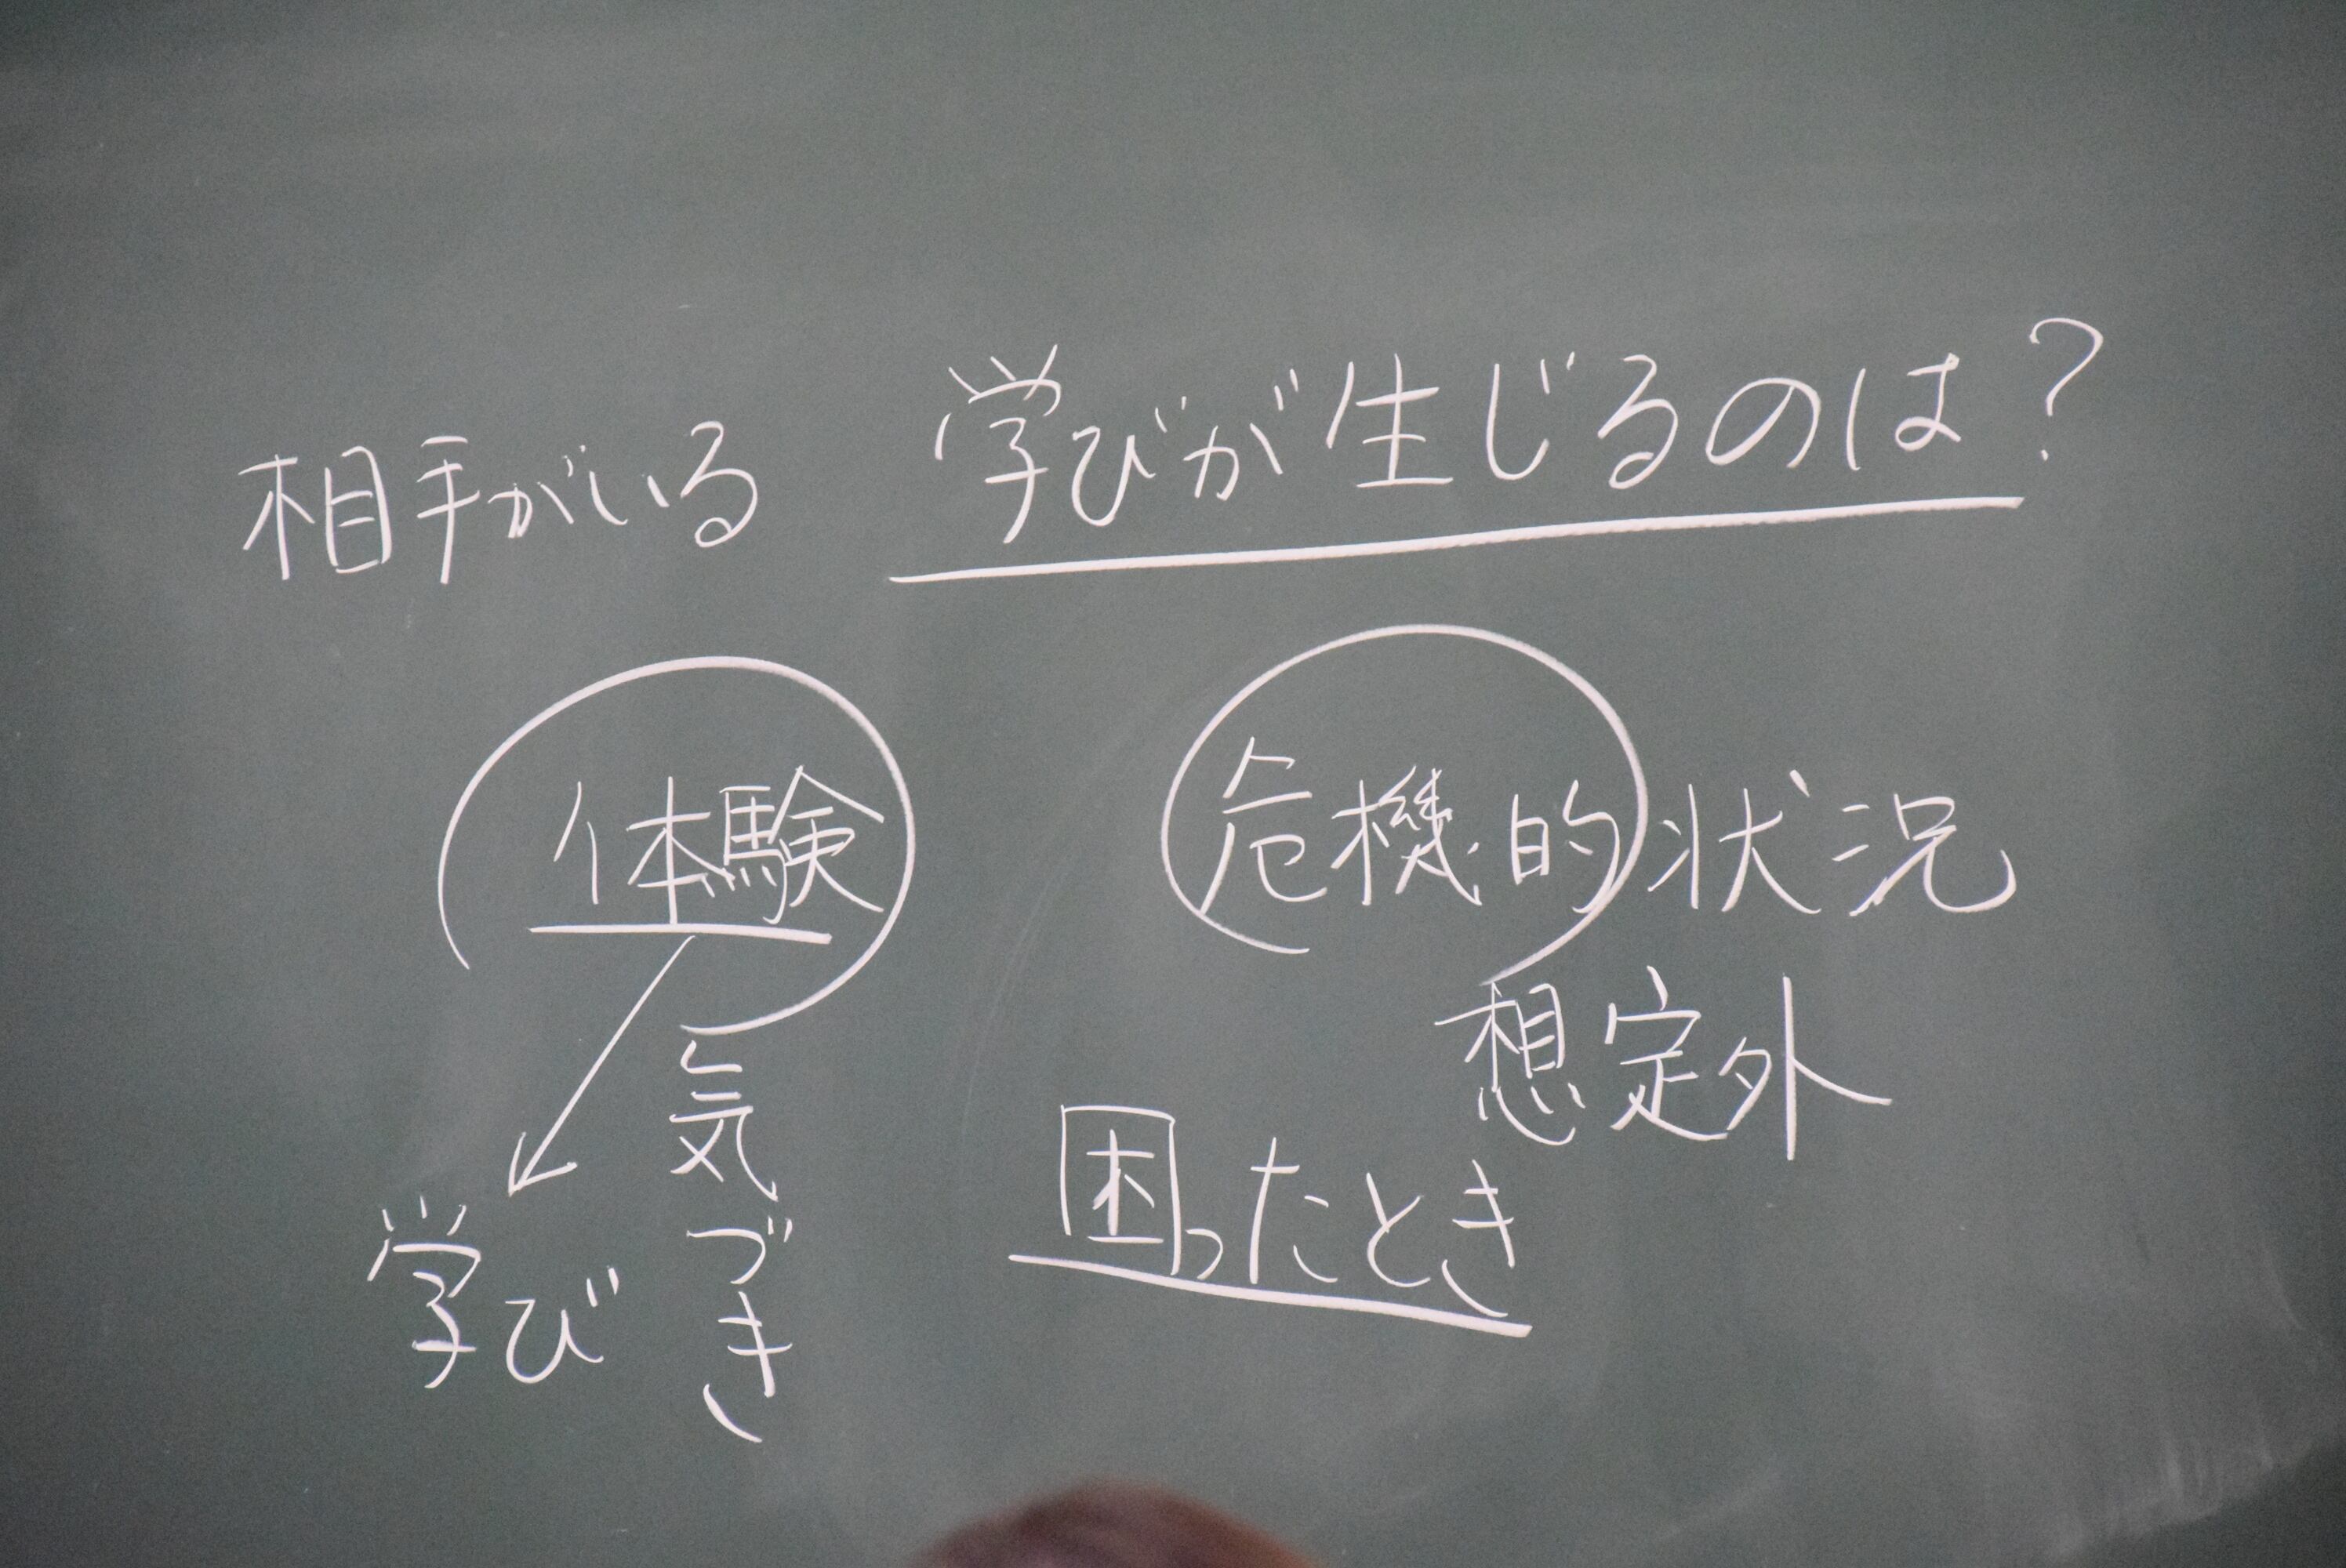 学びが生じるのは？
相手がいる
体験
危機的状況
想定外
気づき
学び
困ったとき